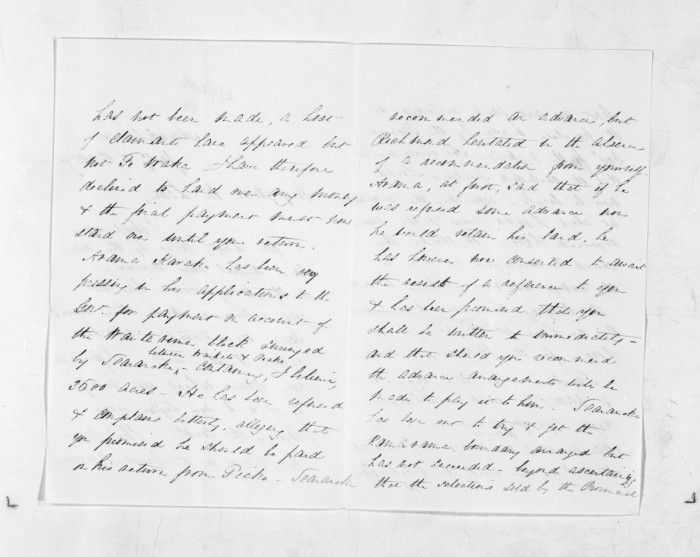 has not been made, a host
of claimants have appeared but
not Te Waka I have therefore
declined to hand over any money
& the final payment must now
stand over until your return.
Arama Karaka has been very
pressing in his applications to the
Gov. for payment on account of
the block surveyed
between &
by - containing, I believe,
3600 acres - He has been refused
& complains bitterly, alleging that
you promised he should be paid
on his return from -
recommended an advance, but
Richmond hesitated in the absence
of a recommendation from yourself.
Arama, at first, said that if he
was refused some advance now
he would retain his land, he
has however now consented to await
the result of a reference to you
& has been promised that you
shall be written to immediately -
and that should you recommend
the advance arrangements will be
made to pay it to him.
has been out to try & get the
boundary arranged but
has not succeeded - beyond ascertaining
that the selections sold by the Provincial